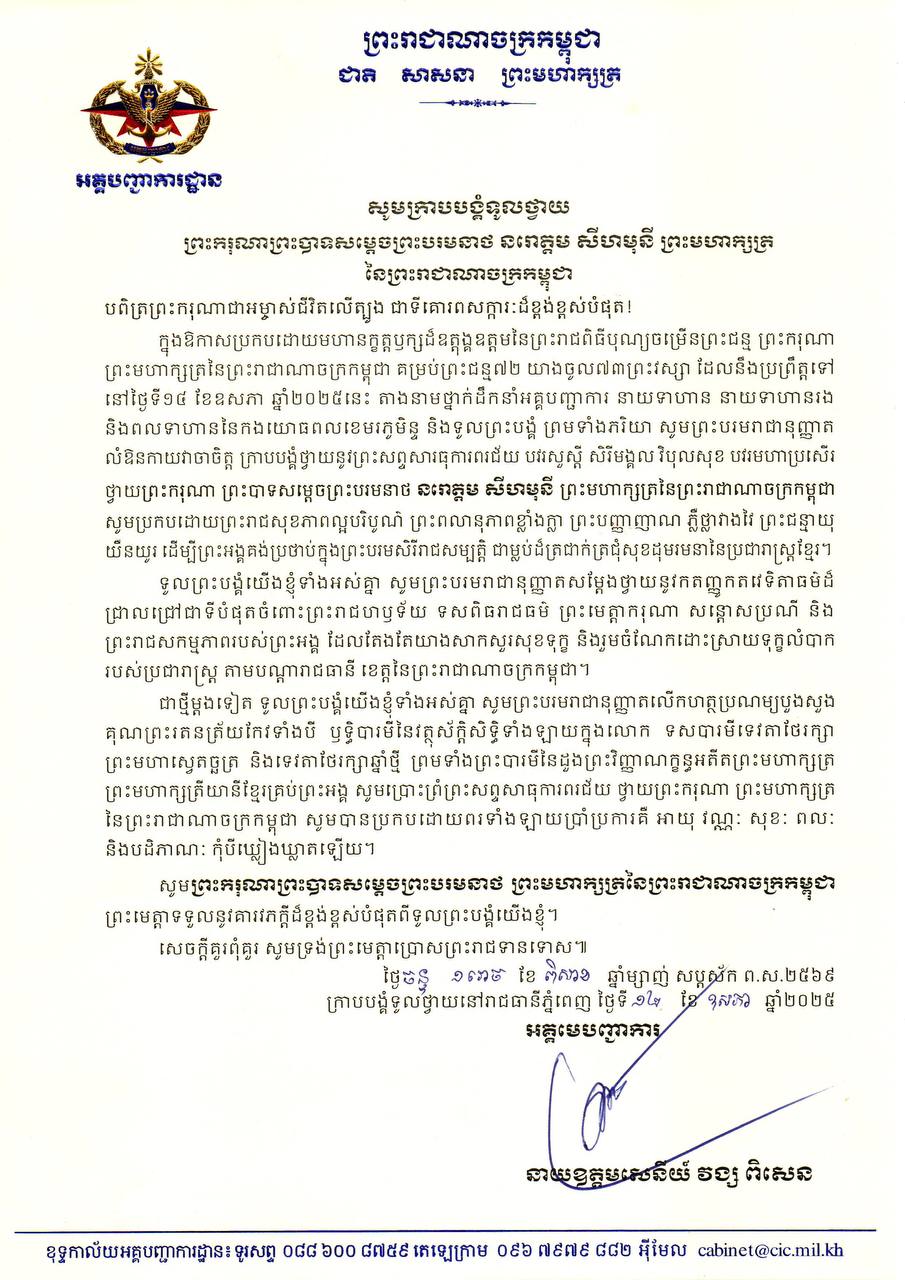 ព្រះរាជាណាចក្រកម្ពុជា
ជាតិ សាសនា ព្រះមហាក្សត្រ
អគ្គបញ្ជាការដ្ឋាន
សូមក្រាបបង្គំទូលថ្វាយ
ព្រះករុណាព្រះបាទសម្តេចព្រះបរមនាថ នរោត្តម សីហមុនី ព្រះមហាក្សត្រ
នៃព្រះរាជាណាចក្រកម្ពុជា
បពិត្រព្រះករុណាជាអម្ចាស់ជីវិតលើត្បូង ជាទីគោរពសក្ការៈដ៏ខ្ពង់ខ្ពស់បំផុត!
ក្នុងឱកាសប្រកបដោយមហានក្ខត្តឫក្សដ៏ឧត្តុង្គឧត្តមនៃព្រះរាជពិធីបុណ្យចម្រើនព្រះជន្ម ព្រះករុណា
ព្រះមហាក្សត្រនៃព្រះរាជាណាចក្រកម្ពុជា គម្រប់ព្រះជន្ម៧២ យាងចូល៧៣ព្រះវស្សា ដែលនឹងប្រព្រឹត្តទៅ
នៅថ្ងៃទី១៤ ខែឧសភា ឆ្នាំ២០២៥នេះ តាងនាមថ្នាក់ដឹកនាំអគ្គបញ្ជាការ នាយទាហាន នាយទាហានរង
និងពលទាហាននៃកងយោធពលខេមរភូមិន្ទ និងទូលព្រះបង្គំ ព្រមទាំងភរិយា សូមព្រះបរមរាជានុញ្ញាត
លំឱនកាយវាចាចិត្ត ក្រាបបង្គំថ្វាយនូវព្រះសព្ទសាធុការពរជ័យ បវរសួស្តី សិរីមង្គល វិបុលសុខ បវរមហាប្រសើរ
ថ្វាយព្រះករុណា ព្រះបាទសម្តេចព្រះបរមនាថ នរោត្តម សីហមុនី ព្រះមហាក្សត្រនៃព្រះរាជាណាចក្រកម្ពុជា
សូមប្រកបដោយព្រះរាជសុខភាពល្អបរិបូណ៌ ព្រះពលានុភាពខ្លាំងក្លា ព្រះបញ្ញាញាណ ភ្លឺថ្លាវាងវៃ ព្រះជន្មាយុ
យឺនយូរ ដើម្បីព្រះអង្គគង់ប្រថាប់ក្នុងព្រះបរមសិរីរាជសម្បត្តិ ជាម្លប់ដ៏ត្រជាក់ត្រជុំសុខដុមរមនានៃប្រជារាស្ត្រខ្មែរ។
ទូលព្រះបង្គំយើងខ្ញុំទាំងអស់គ្នា សូមព្រះបរមរាជានុញ្ញាតសម្តែងថ្វាយនូវកតញ្ញូកតវេទិតាធម៌ដ៏
ជ្រាលជ្រៅជាទីបំផុតចំពោះព្រះរាជហឫទ័យ ទសពិធរាជធម៌ ព្រះមេត្តាករុណា សន្តោសប្រណី និង
ព្រះរាជសកម្មភាពរបស់ព្រះអង្គ ដែលតែងតែយាងសាកសួរសុខទុក្ខ និងរួមចំណែកដោះស្រាយទុក្ខលំបាក
របស់ប្រជារាស្ត្រ តាមបណ្តារាជធានី ខេត្តនៃព្រះរាជាណាចក្រកម្ពុជា។
ជាថ្មីម្តងទៀត ទូលព្រះបង្គំយើងខ្ញុំទាំងអស់គ្នា សូមព្រះបរមរាជានុញ្ញាតលើកហត្ថប្រណម្យបួងសួង
គុណព្រះរតនត្រ័យកែវទាំងបី ឫទ្ធិបារមីនៃវត្ថុស័ក្តិសិទ្ធិទាំងឡាយក្នុងលោក ទសបារមីទេវតាថែរក្សា
ព្រះមហាស្វេតច្ឆត្រ និងទេវតាថែរក្សាឆ្នាំថ្មី ព្រមទាំងព្រះបារមីនៃដួងព្រះវិញ្ញាណក្ខន្ធអតីតព្រះមហាក្សត្រ
ព្រះមហាក្សត្រីយានីខ្មែរគ្រប់ព្រះអង្គ សូមប្រោះព្រំព្រះសព្ទសាធុការពរជ័យ ថ្វាយព្រះករុណា ព្រះមហាក្សត្រ
នៃព្រះរាជាណាចក្រកម្ពុជា សូមបានប្រកបដោយពរទាំងឡាយប្រាំប្រការគឺ អាយុ វណ្ណៈ សុខៈ ពលៈ
និងបដិភាណៈ កុំបីឃ្លៀងឃ្លាតឡើយ។
សូមព្រះករុណាព្រះបាទសម្តេចព្រះបរមនាថ ព្រះមហាក្សត្រនៃព្រះរាជាណាចក្រកម្ពុជា
ព្រះមេត្តាទទួលនូវគារវភក្តីដ៏ខ្ពង់ខ្ពស់បំផុតពីទូលព្រះបង្គំយើងខ្ញុំ។
សេចក្តីគួរពុំគួរ សូមទ្រង់ព្រះមេត្តាប្រោសព្រះរាជទានទោស៕
ថ្ងៃចន្ទ ១រោច ខែ ពិសាខ ឆ្នាំម្សាញ់ សប្តស័ក ព.ស.២៥៦៩
ក្រាបបង្គំទូលថ្វាយនៅរាជធានីភ្នំពេញ ថ្ងៃទី ១២ ខែ ឧសភា ឆ្នាំ២០២៥
អគ្គមេបញ្ជាការ
នាយឧត្តមសេនីយ៍ វង្ស ពិសេន
ខុទ្ទកាល័យអគ្គបញ្ជាការដ្ឋាន៖ ទូរសព្ទ ០៨៨ ៦០០ ៨៧៥៩ តេឡេក្រាម ០៩៦ ៧៩៧៩ ៨៨២ អ៊ីមែល cabinet@cic.mil.kh